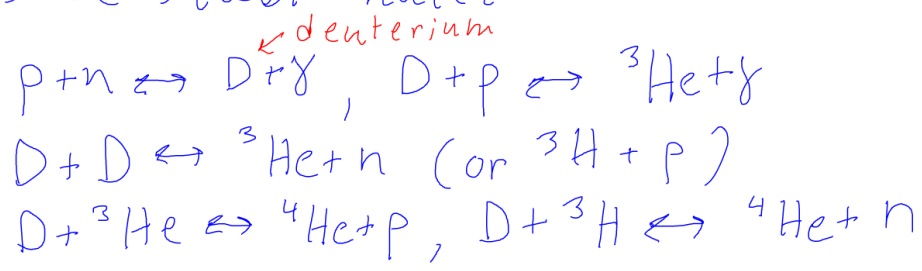 deuterium
p+n ↔ D+γ, D+p ↔ ³He+γ
D+D ↔ ³He+n (or ³H + p)
D+³He ↔ ⁴He+p, D+³H ↔ ⁴He+n